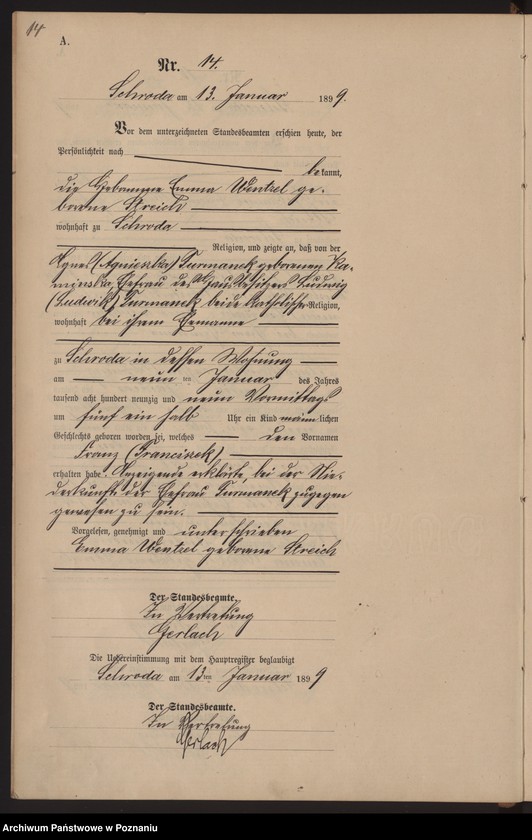 14
A.
Nr. 14.
Schroda am 13. Januar 1899.
Vor dem unterzeichneten Standesbeamten erschien heute, der
Persönlichkeit nach
bekannt,
die Hebamme Emma Wentzel ge-
borene Streich
wohnhaft zu Schroda
Religion, und zeigte an, daß von der
Agnes (Agnieszka) Turmanek geborenen Ka-
minska, Ehefrau des Hausbesitzers Ludwig
(Ludwik) Turmanek beide katholischer Religion,
wohnhaft bei ihrem Ehemanne
zu Schroda in dessen Wohnung
am neun ten Januar des Jahres
tausend acht hundert neunzig und neun Vormittags
um fünf ein halb Uhr ein Kind männlichen
Geschlechts geboren worden sei, welches den Vornamen
Franz (Franciszek)
erhalten habe. Anzeigende erklärte, bei der Nie-
derkunft der Ehefrau Turmanek zugegen
gewesen zu sein.
Vorgelesen, genehmigt und unterschrieben
Emma Wentzel geborene Streich
Der Standesbeamte.
In Vertretung
Gerlach
Die Uebereinstimmung mit dem Hauptregister beglaubigt
Schroda am 13ten Januar 1899
Der Standesbeamte.
In Vertretung
Gerlach
Archiwum Państwowe w Poznaniu